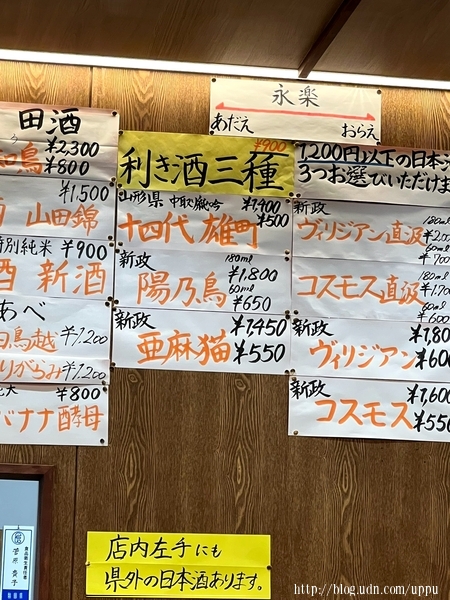 永楽
あだえ おらえ
田酒
¥2,300
鳥 ¥800
¥1,500
山田錦
特別純米 ¥900
酒 新酒
あべ
白鳥越 ¥1,200
りがらみ ¥1,200
¥800
バナナ酵母
¥900
利き酒三種
山形県 中取り厳吟 ¥1,400
十四代 雄町 ¥500
新政 180ml
陽乃鳥 ¥1,800
60ml
¥650
新政 ¥1,450
亜麻猫 ¥550
1,200円以下の日本酒
3つお選びいただけま
新政 180ml
ヴィリジアン直汲
60ml
¥700
新政 180ml
コスモス直汲
60ml
¥600
新政
ヴィリジアン
新政 ¥1,600
コスモス ¥550
店内左手にも
県外の日本酒あります。
http://blog.udn.com/uppu